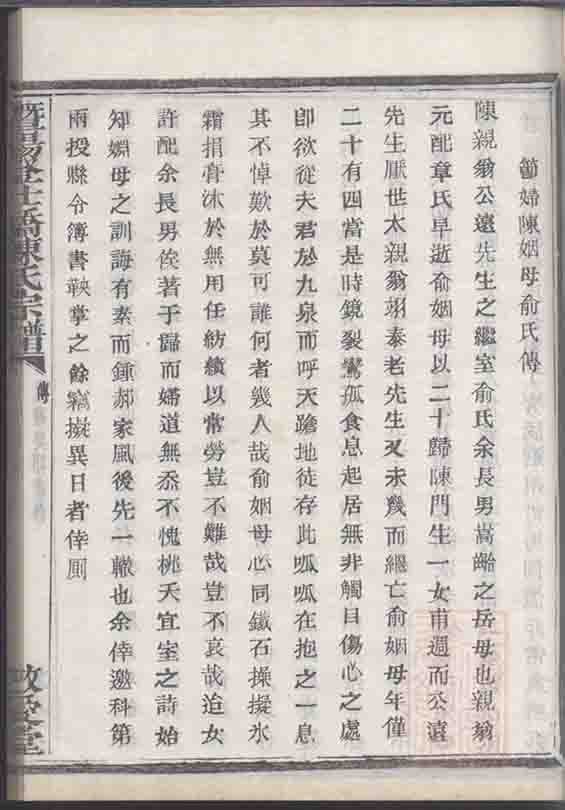 節婦陳姻母俞氏傳
陳親翁公遠先生之繼室俞氏余長男嵩齡之岳母也親翁
元配章氏早逝俞姻母以二十歸陳門生一女甫週而公遠
先生厭世太親翁翊泰老先生又未幾而繼亡俞姻母年僅
二十有四當是時鏡裂鸞孤食息起居無非觸目傷心之處
即欲從夫君於九泉而呼天蹌地徒存此呱呱在抱之一息
其不悼歎於莫可誰何者幾人哉俞姻母心同鐵石操擬氷
霜捐膏沐於無用任紡績以常勞豈不難哉豈不哀哉迨女
許配余長男俟著于歸而婦道無忝不愧桃夭宜室之詩始
知姻母之訓誨有素而鍾郝家風後先一轍也余倖邀科第
兩授縣令簿書鞅掌之餘竊擬異日者倖厠
暨陽陳氏宗譜
傳
敦愛堂